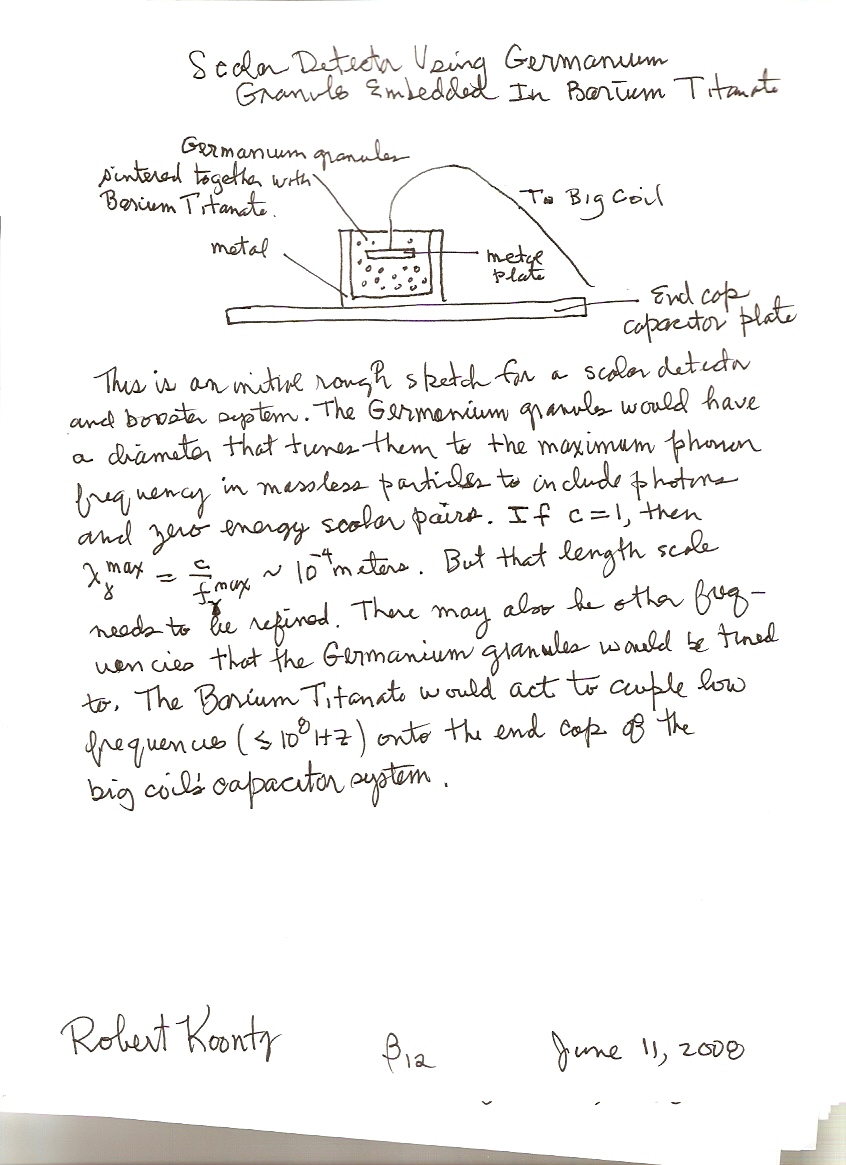 Scalar Detector Using Germanium
Granules Embedded In Barium Titanate
Germanium granules
sintered together with
Barium Titanate.
To Big Coil
metal
metal
plate
End cap
capacitor plate
This is an initial rough sketch for a scalar detector
and booster system. The Germanium granules would have
a diameter that tunes them to the maximum phonon
frequency in massless particles to include photons
and zero energy scalar pairs. If c=1, then
λγ^max = c/fγ^max ~ 10^-4 meters. But that length scale
needs to be refined. There may also be other freq-
uencies that the Germanium granules would be tuned
to. The Barium Titanate would act to couple low
frequencies (≤ 10^8 HZ) onto the end cap of the
big coil's capacitor system.
Robert Koontz
β12
June 11, 2008